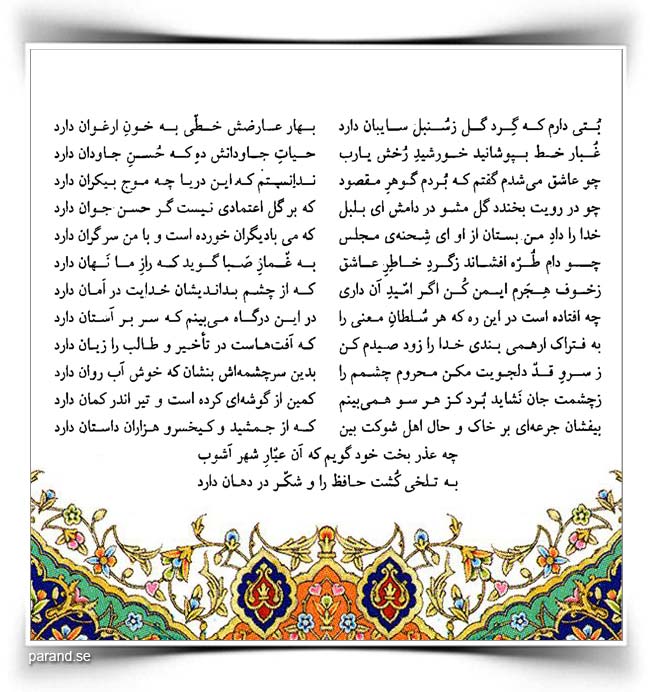 بُتی دارم که گِرد گل زسُنبل سایبان دارد بهار عارضش خطّی به خونِ ارغوان دارد
غُبار خط بپوشانید خورشیدِ رُخش یارب حیاتِ جاودانش ده که حُسنِ جاودان دارد
چو عاشق می‌شدم گفتم که بُردم گوهرِ مقصود ندانستم که این دریا چه موج بیکران دارد
چو در رویت بخندد گل مشو در دامش ای بلبل که بر گل اعتمادی نیست گر حسن جوان دارد
خدا را دادِ من بستان از او ای شِحنه‌ی مجلس که می بادیگران خورده است و با من سر گران دارد
چو دام طُرّه افشاند زگردِ خاطِرِ عاشق به غّمازِ صَبا گوید که رازِ ما نَهان دارد
زخوف هِجَرم ایمن کُن اگر امّیدِ آن داری که از چشم بداندیشان خدایت در اَمان دارد
چه افتاده است در این ره که هر سُلطانِ معنی را در این درگاه می‌بینم که سر بر آستان دارد
به فتراک ارهمی بندی خدا را زود صیدم کن که آفت‌هاست در تأخیر و طالب را زیان دارد
ز سروِ قدّ دلجویت مکن محروم چشمم را بدین سرچشمه‌اش بنشان که خوش آب روان دارد
زچشمت جان نَشاید بُرد کز هر سو همی‌بینم کمین از گوشه‌ای کرده است و تیر اندر کمان دارد
بیفشان جرعه‌ای بر خاک و حال اهل شوکت بین که از جمشید و کیخسرو هزاران داستان دارد
چه عذر بخت خود گویم که آن عیّارِ شهر آشوب
به تلخی کُشت حافظ را و شکّر در دهان دارد
parand.se